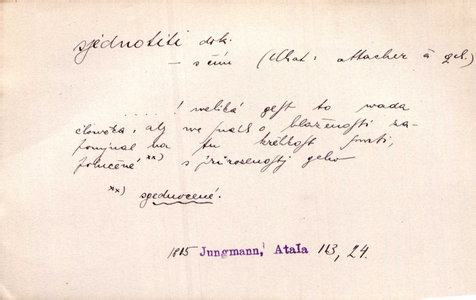 sjednotiti dok.
– s čím (Chat: attacher à qch.)
. . . . . ! weliká gest to wada
člowěka, aby we snách o blaženosti za-
pomjnal na tu krátkost smrti,
slučené xx) s přirozenostj geho
xx) sgednocené.
1805 Jungmann, Atala 113, 24.